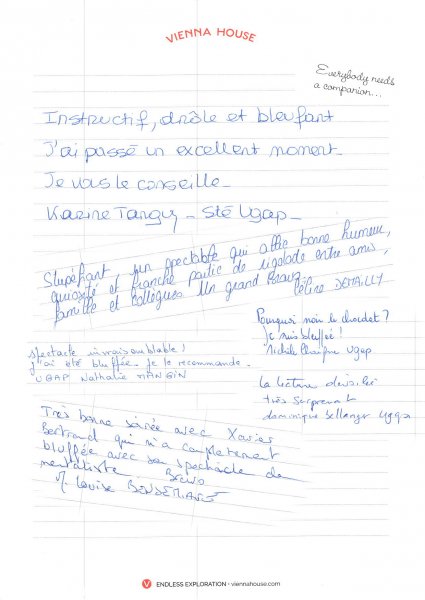 VIENNA HOUSE
Everybody needs
a companion...
Instructif, drôle et bleufant
J'ai passé un excellent moment.
Je vous le conseille_
Karine Tanguy _ Sté Ugap_
Stupéfiant, un spectacle qui allie bonne humeur,
curiosité et franche partie de rigolade entre amis,
famille et collègues. Un grand Bravo.
Céline
Pourquoi moi le chocolat ?
Je suis bluffée !
Michèle Ugap
spectacle invraisemblable !
j'ai été bluffée. je le recommande.
UGAP Nathalie MANGIN
La lecture
très surprenant
dominique Bellanger ugap
Très bonne soirée avec Xavier
Bertrand qui m'a complètement
bluffée avec son spectacle de
mentaliste Bravo
M. Louise
ENDLESS EXPLORATION • viennahouse.com